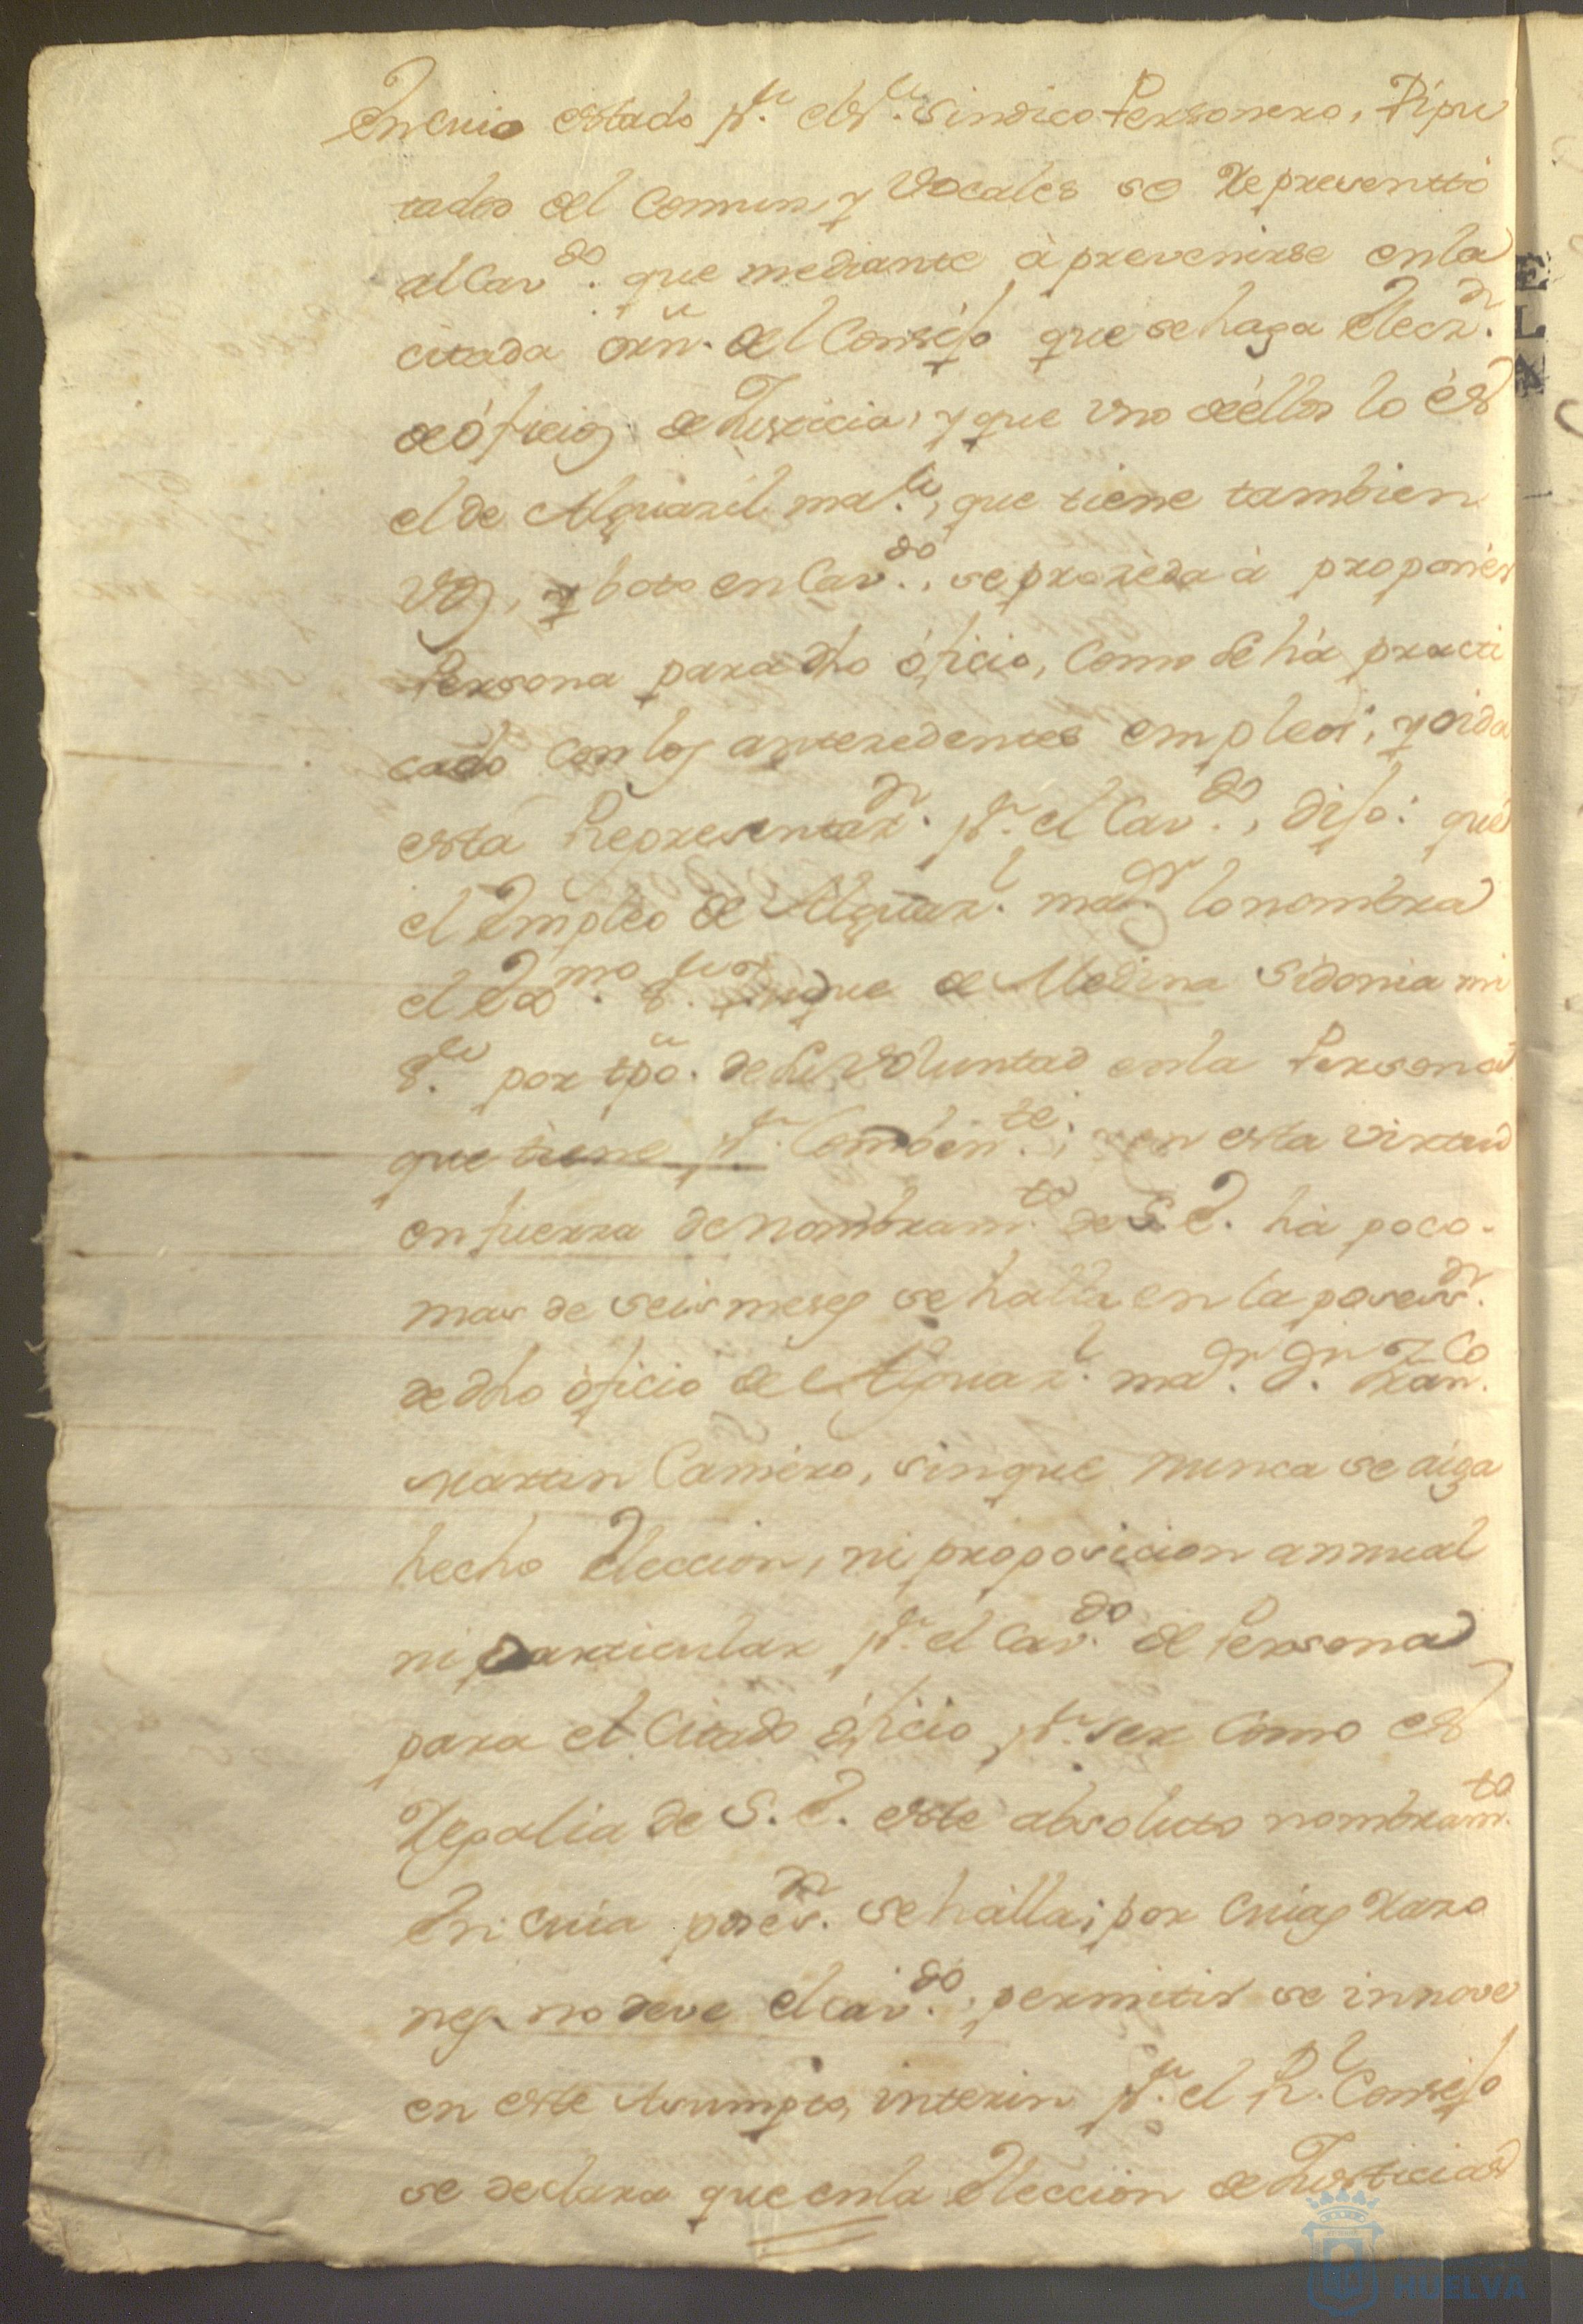 En cuio estado pr. el Sr. Sindico Personero, Dipu
tados del Comun, y Vocales se Representtó
al Cavdo. que mediante à prevenirse en la
citada orn. del Consejo que se haga Eleczn.
de óficios de Justicia, y que uno de éllos lo és
el de Alguazil mor., que tiene tambien
voz, y boto en Cavdo., se prozéda à proponér
Persona para dho óficio, como se há practi
cado con los antezedentes empleos; y oida
esta Representazn. pr. el Cavdo., dijo: que
el Empleo de Alguazl. mor. lo nombra
el Exmo. Sr. Duque de Medina Sidonia mi
Sr. por tpo. de su voluntad en la Persona
que tiene pr. combente.; y en esta virtud
en fuerza de nombramto. de S. E. há poco
mas de seis meses se halla en la posesn.
de dho óficio de Alguazl. mor. Dn. Franco.
Martin Caméro, sin que nunca se aiga
hecho Eleccion, ni proposicion annual
ni particular pr. el Cavdo. de Persona
para el citado óficio pr. ser como es
Regalia de S. E. este absoluto nombramto.
En cuia posesn. se hálla; por cuias razo
nes no deve el Cavdo., permitir se innove
en este Asumpto, interin pr. el Rl. Consejo
se declara que en la Eleccion de Justicias
HUELVA